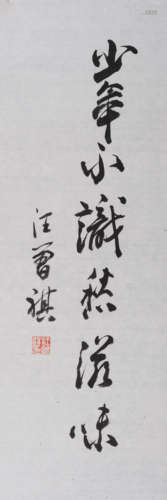 少年不識愁滋味
汪曾祺